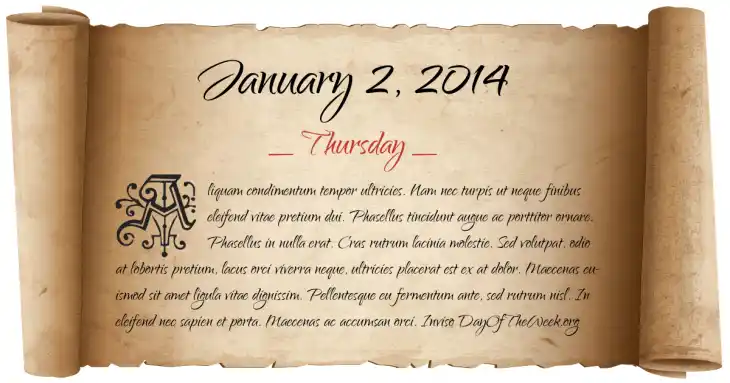 January 2, 2014
_ Thursday _
Aliquam condimentum tempor ultricies. Nam nec turpis ut neque finibus
eleifend vitae pretium dui. Phasellus tincidunt augue ac porttitor ornare.
Phasellus in nulla erat. Cras rutrum lacinia molestie. Sed volutpat, odio
at lobortis pretium, lacus orci viverra neque, ultricies placerat est ex at dolor. Maecenas eu-
ismod sit amet ligula vitae dignissim. Pellentesque eu fermentum ante, sed rutrum nisl. In
eleifend nec sapien et porta. Maecenas ac accumsan orci. Inviso DayOfTheWeek.org